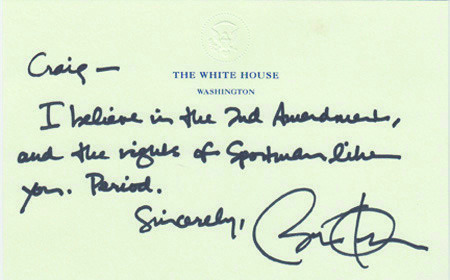 Craig—
THE WHITE HOUSE
WASHINGTON
I believe in the 2nd Amendment,
and the rights of Sportsmen like
you. Period.
Sincerely,